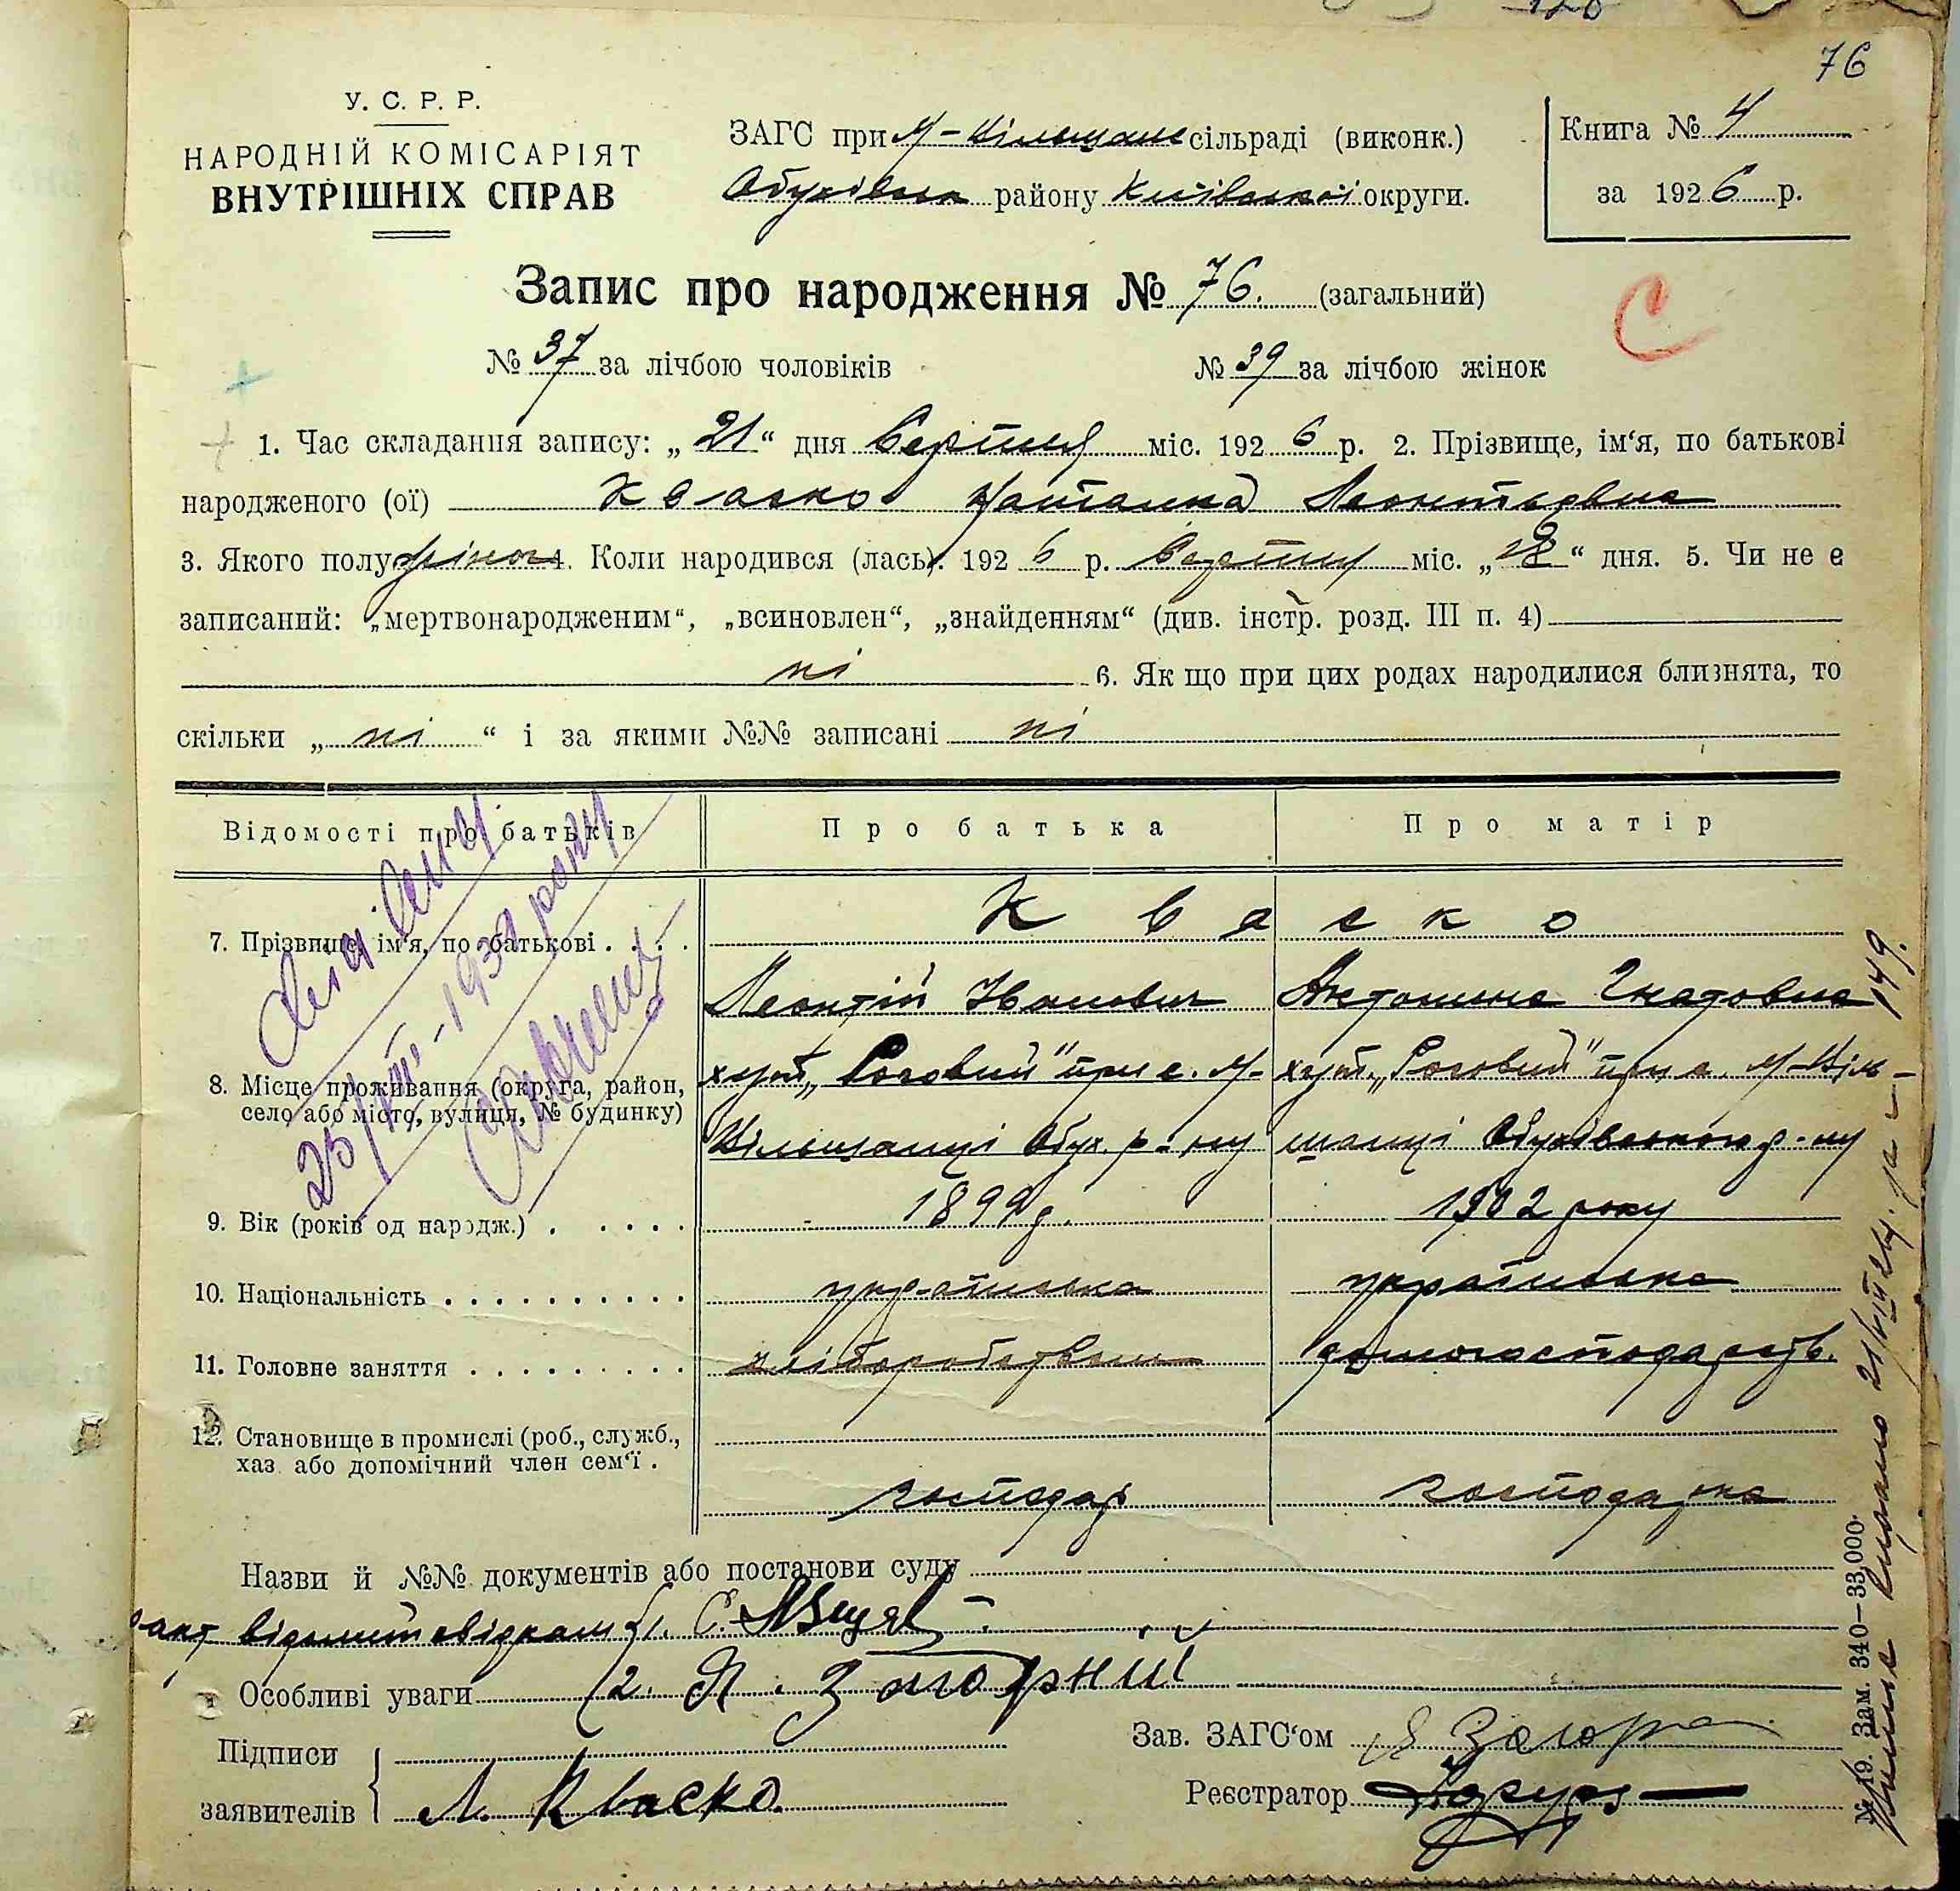 76
У. С. Р. Р.
НАРОДНІЙ КОМІСАРІЯТ
ВНУТРІШНІХ СПРАВ
ЗАГС при М-Вільшан сільраді (виконк.)
району Київської округи.
Книга № 4
за 1926 р.
Запис про народження № 76. (загальний)
№ 37 за лічбою чоловіків № 39 за лічбою жінок
С
1. Час складання запису: „21“ дня Серпня міс. 1926 р. 2. Прізвище, ім‘я, по батькові
народженого (ої) Кваско Наталка Леонтьєвна
3. Якого полу жіноч 4. Коли народився (лась). 1926 р. Серпня міс. „ “ дня. 5. Чи не є
записаний: „мертвонародженим“, „всиновлен“, „знайденням“ (див. інстр. розд. III п. 4)
ні 6. Як що при цих родах народилися близнята, то
скільки „ ні “ і за якими №№ записані ні
Відомості про батьків Про батька Про матір
7. Прізвище, ім‘я, по батькові . . . . Кваско
Леонтій Іванович Антонина Гнатовна
8. Місце проживання (округа, район, село або місто, вулиця, № будинку) хут. „Роговий“ при с. М- хут. „Роговий“ при с. М-Віль-
Вільшанці Обух. р-ну шанці Обухівського р-ну
9. Вік (років од народж.) . . . . . 1902 року
10. Національність . . . . . . . . . . українська українська
11. Головне заняття . . . . . . . . . хліборобством домогосподарств.
12. Становище в промислі (роб., служб.,
хаз. або допомічний член сем‘ї .
господар господарка
Назви й №№ документів або постанови суду
акт
Особливі уваги 2. П. Загорний
Підписи
заявителів Л. Кваско
Зав. ЗАГС‘ом
Реєстратор
№ 19. Зам. 340—33,000.